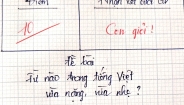 Điểm
10
Con giỏi !
Đề bài
Từ nào trong tiếng Việt
vừa nặng, vừa nhẹ ?